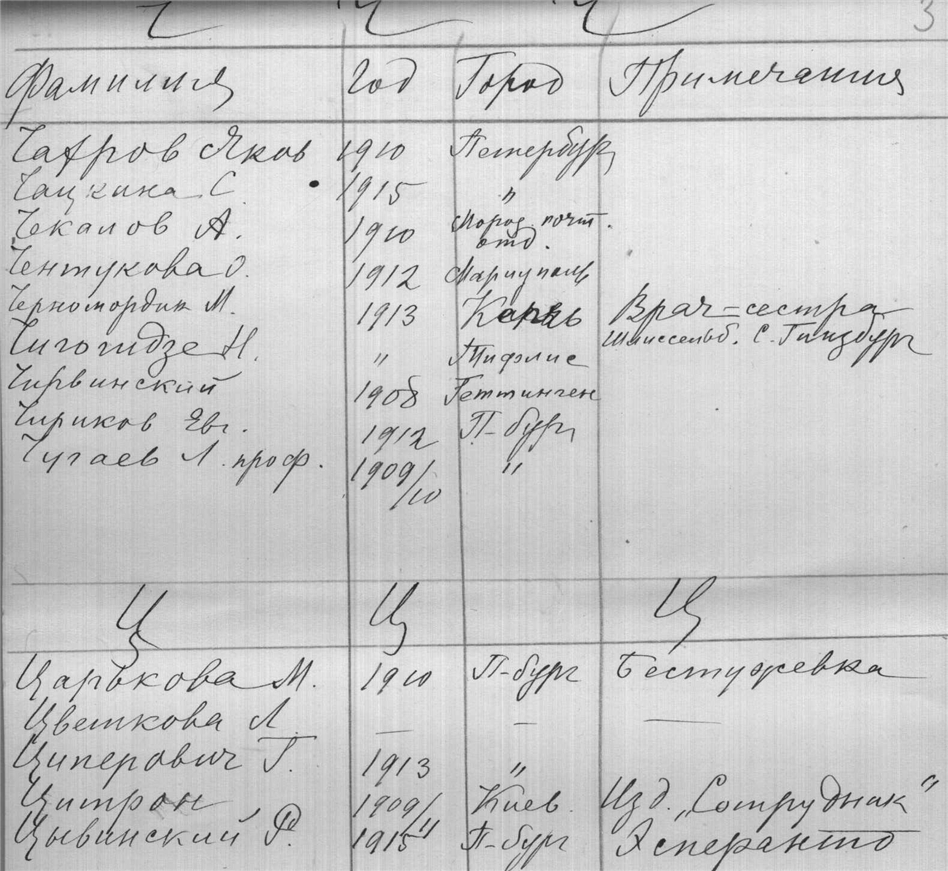 3
Фамилия Год Город Примечания
Чафров Яков 1910 Петербург
Чацкина С. 1915 "
Чекалов А. 1910 почт.
отд.
Чентукова О. 1912 Мариуполь
Черномордик М. 1913 Врач=сестра
Шлиссельб. С. Гинзбург
Чигогидзе Н. " Тифлис
Чирвинский 1908 Геттинген
Чириков Евг. 1912 П-бург
Чугаев Л. проф. 1909/10 "
Ц Ц Ц
Царькова М. 1910 П-бург Бестужевка
Цветкова Л — — —
Циперович Г. 1913 "
Цитрон 1909/11 Киев. Изд. „Сотрудник“
Цывинский Ф. 1915 П-бург Эсперанто